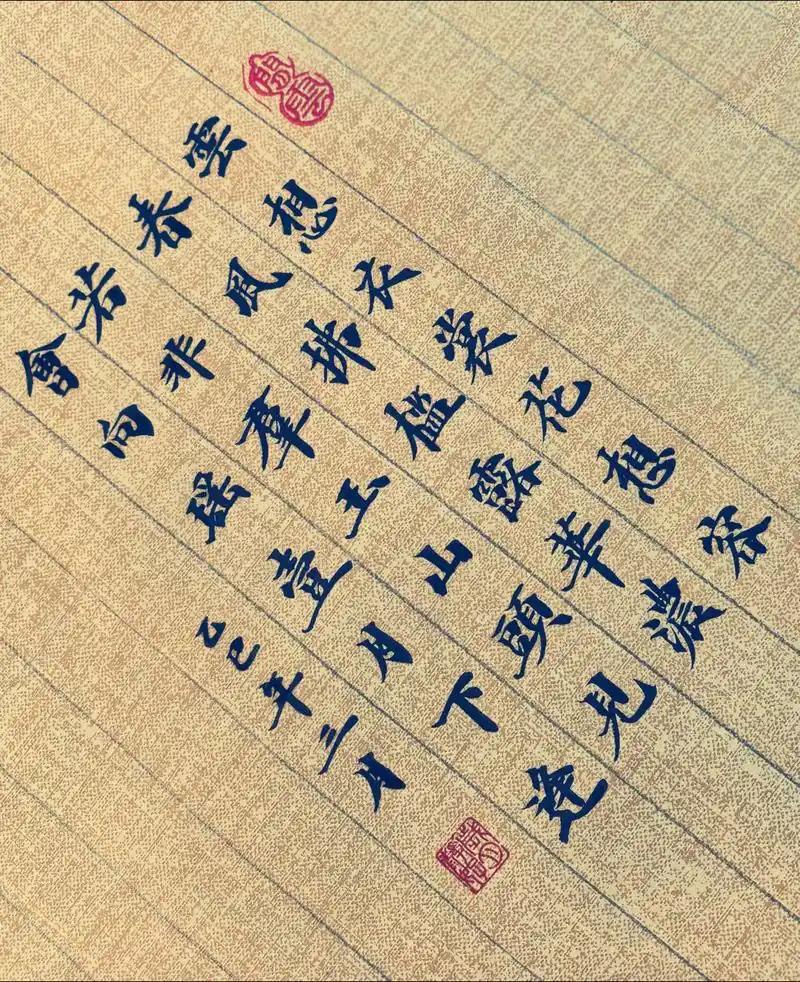 雲想衣裳花想容
春風拂檻露華濃
若非羣玉山頭見
會向瑤臺月下逢
乙巳年三月